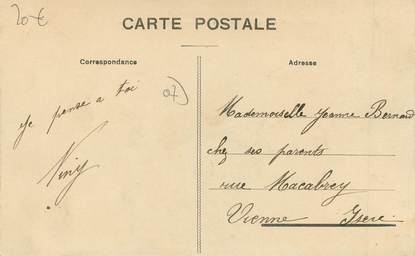 20€
CARTE POSTALE
Correspondance
Adresse
07
Je pense a toi
Niny
Mademoiselle Jeanne Bernard
chez ses parents
rue Macabrey
Vienne Isère